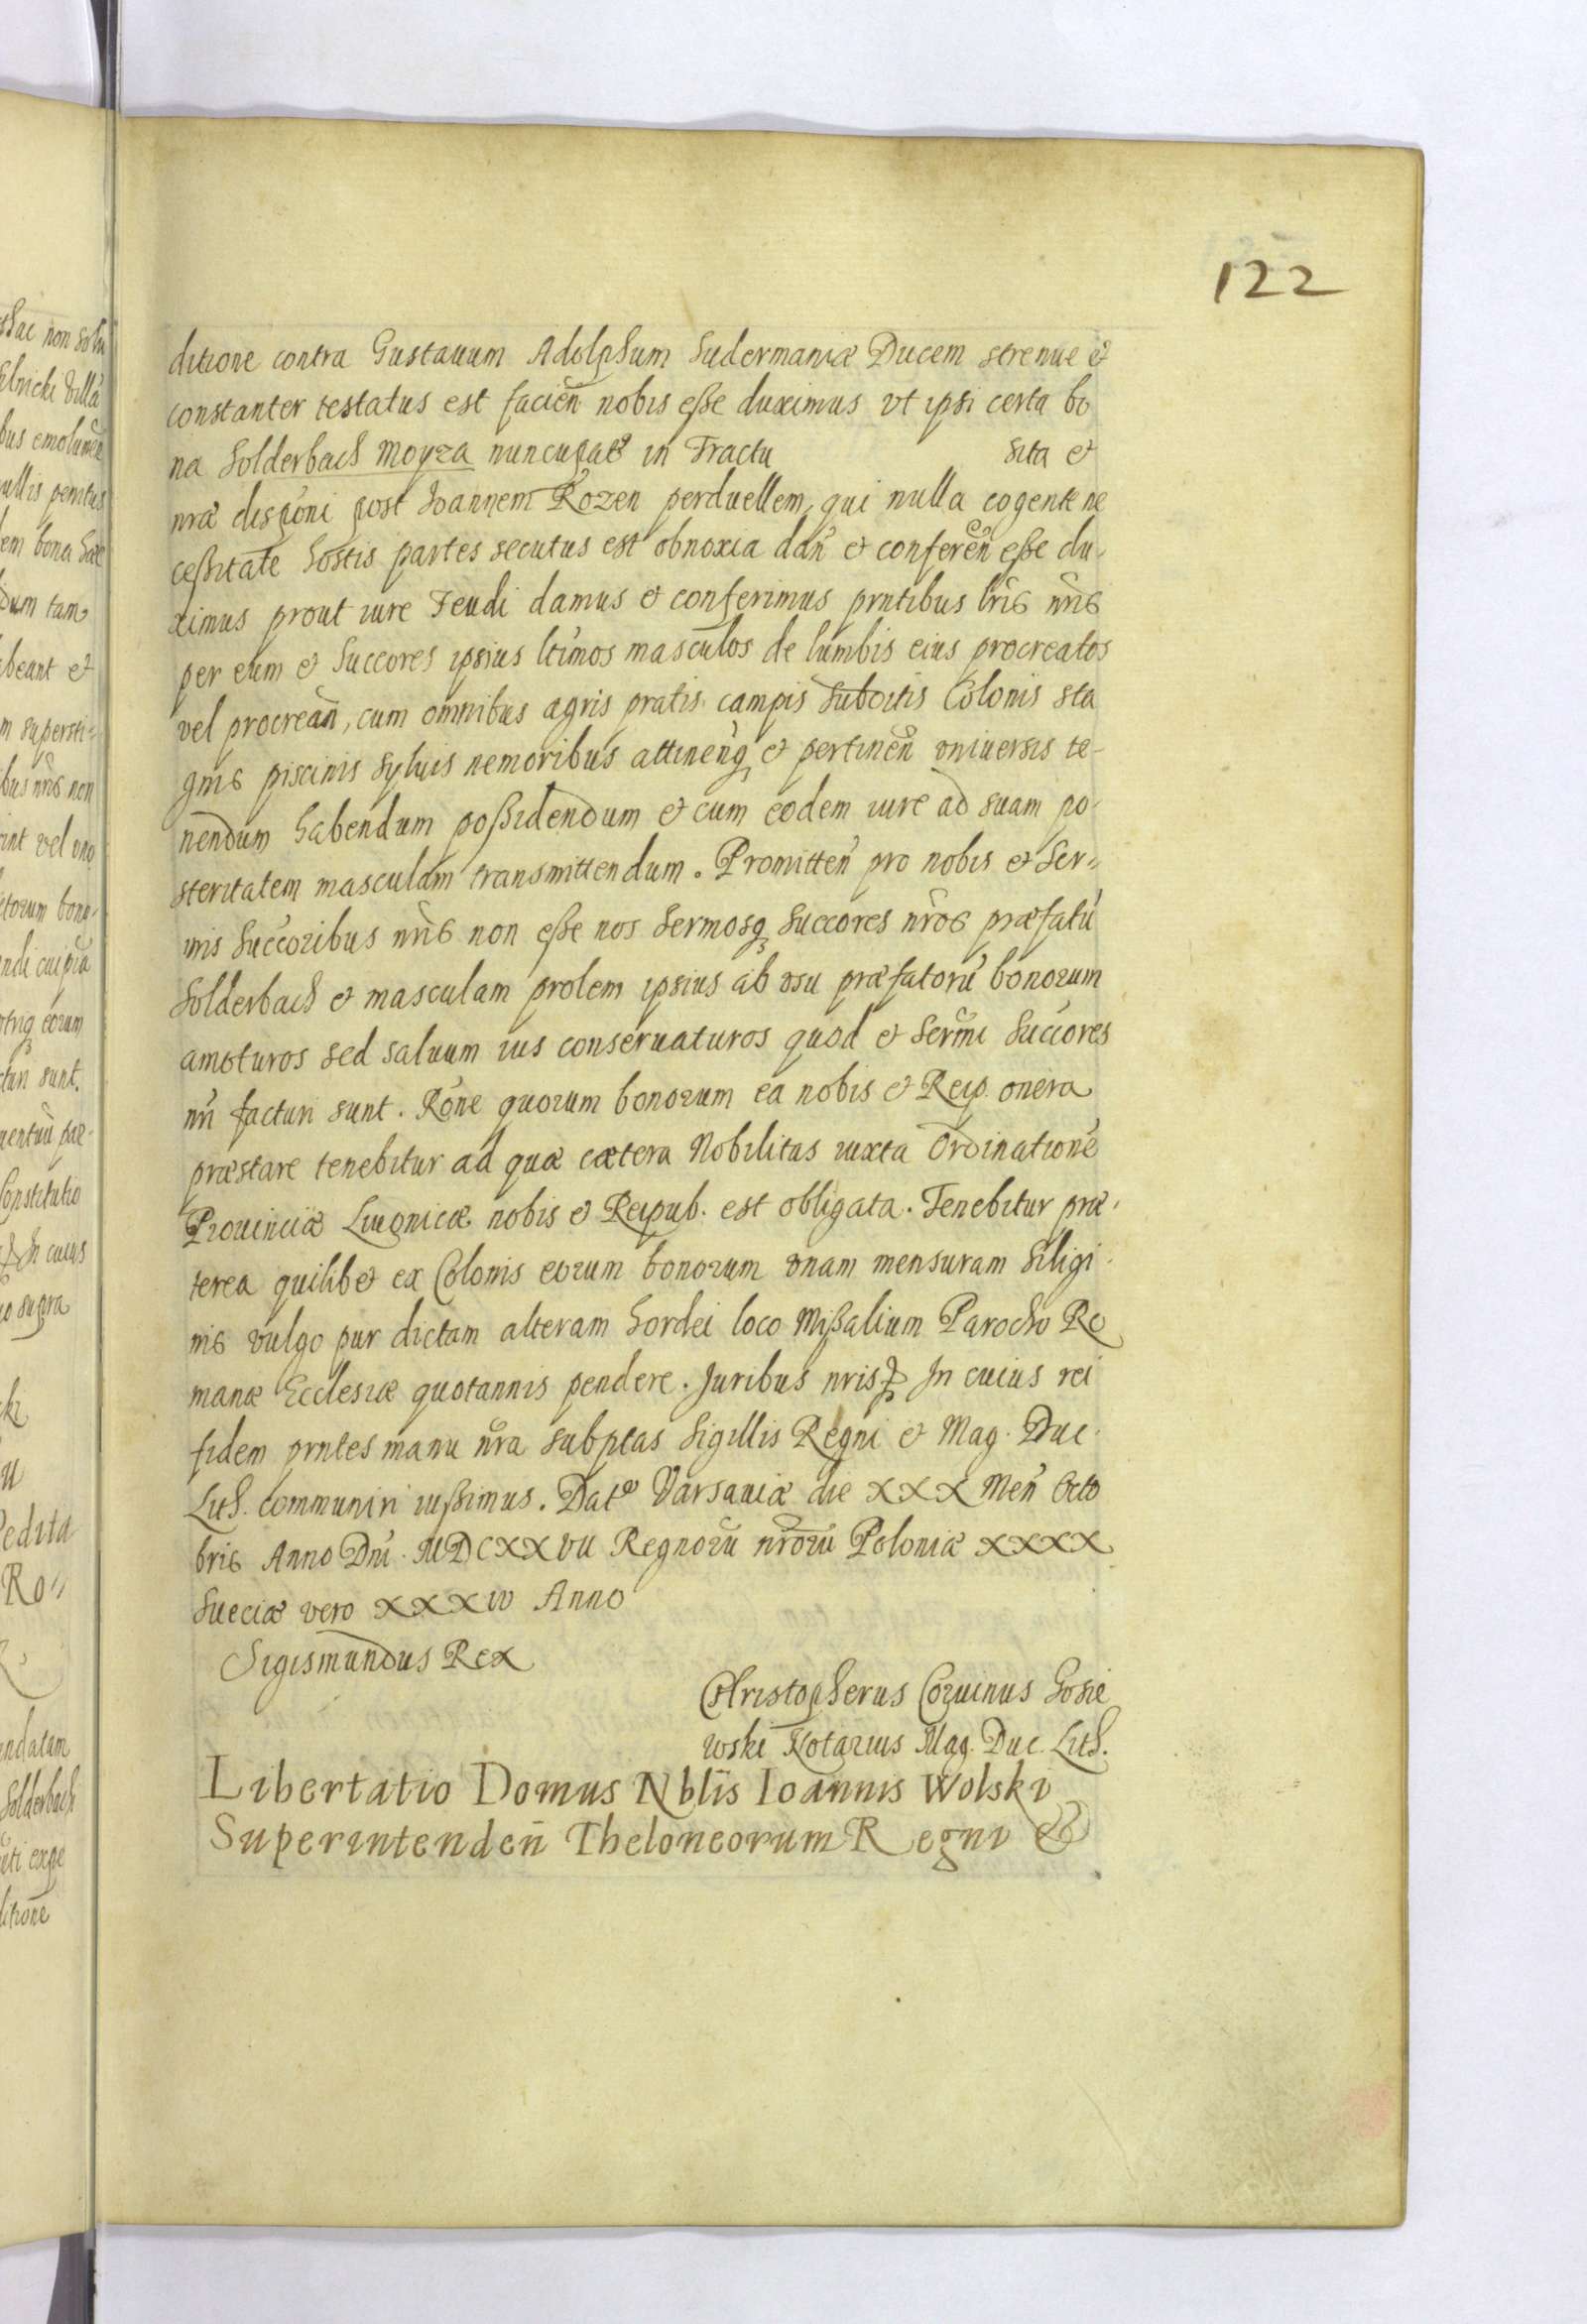 122
ditione contra Gustauum Adolphum Sudermaniæ Ducem strenue et
constanter testatus est facien̄ nobis esse duximus vt ipsi certa bo
na Holderbach Moyza nuncupat in Tractu sita et
nræ disponi post Ioannem Rozen perduellem, qui nulla cogente ne
cessitate hostis partes secutus est obnoxia dan̄ et conferen̄ esse du-
ximus prout iure Feudi damus et conferimus prntibus lris nris
per eum et Succores ipsius ltimos masculos de lumbis eius procreatos
vel procrean̄, cum omnibus agris pratis campis subditis Colonis sta
gnis piscinis syluis nemoribus attinenq et pertinen̄ vniuersis te-
nendum habendum possidendum et cum eodem iure ad suam po-
steritatem masculam transmittendum. Promitten̄ pro nobis et Ser-
mis Succoribus nris non esse nos Sermosq Succores nros præfatū
Holderbach et masculam prolem ipsius ab vsu præfatorū bonorum
amoturos sed saluum ius conseruaturos quod et Sermi Succores
nri facturi sunt. Rōne quorum bonorum ea nobis et Reip. onera
præstare tenebitur ad quæ cætera Nobilitas iuxta Ordinationē
Prouinciæ Liuonicæ nobis et Reipub. est obligata. Tenebitur præ-
terea quilibet ex Colonis eorum bonorum vnam mensuram siligi-
nis vulgo pur dictam alteram hordei loco Missalium Parocho Ro
manæ Ecclesiæ quotannis pendere. Juribus nris In cuius rei
fidem prntes manu nra subptas Sigillis Regni et Mag. Duc.
Lith. communiri iussimus. Dat Varsauiæ die XXX Men̄ Octo
bris Anno Dni. MDCXXVII Regnorū nrorū Poloniæ XXXX
Sueciæ vero XXXIV Anno
Sigismundus Rex
Christopherus Coruinus Gosie
wski Notarius Mag. Duc. Lith.
Libertatio Domus Nblis Ioannis Wolski
Superintenden̄ Theloneorum Regni &